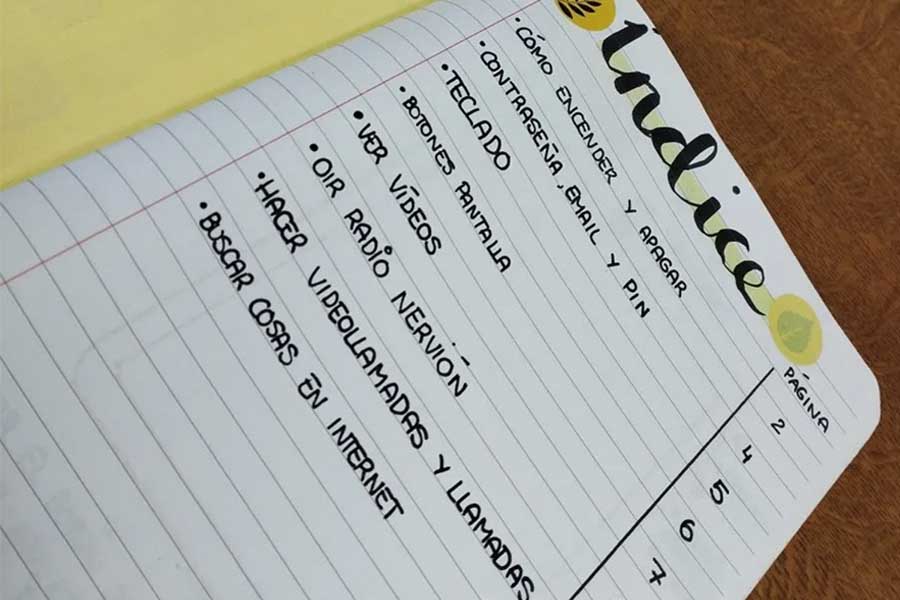 índice
PÁGINA
• CÓMO ENCENDER Y APAGAR 2
• CONTRASEÑA, EMAIL Y PIN 4
• TECLADO 5
• BOTONES PANTALLA 6
• VER VÍDEOS 7
• OIR RADIO NERVIÓN
• HACER VIDEOLLAMADAS Y LLAMADAS
• BUSCAR COSAS EN INTERNET